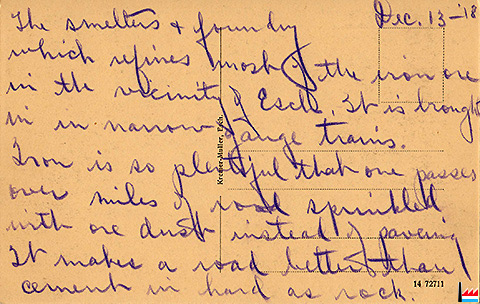 Dec. 13-'18
The smelters & foundry
which refines most of the iron ore
in the vicinity of Esch. It is brought
in in narrow gauge trains.
Iron is so plentiful that one passes
over miles of road sprinkled
with ore dust instead of paving
It makes a road better than
cement in hard as rock.
Kremer-Muller, Esch.
14 72711